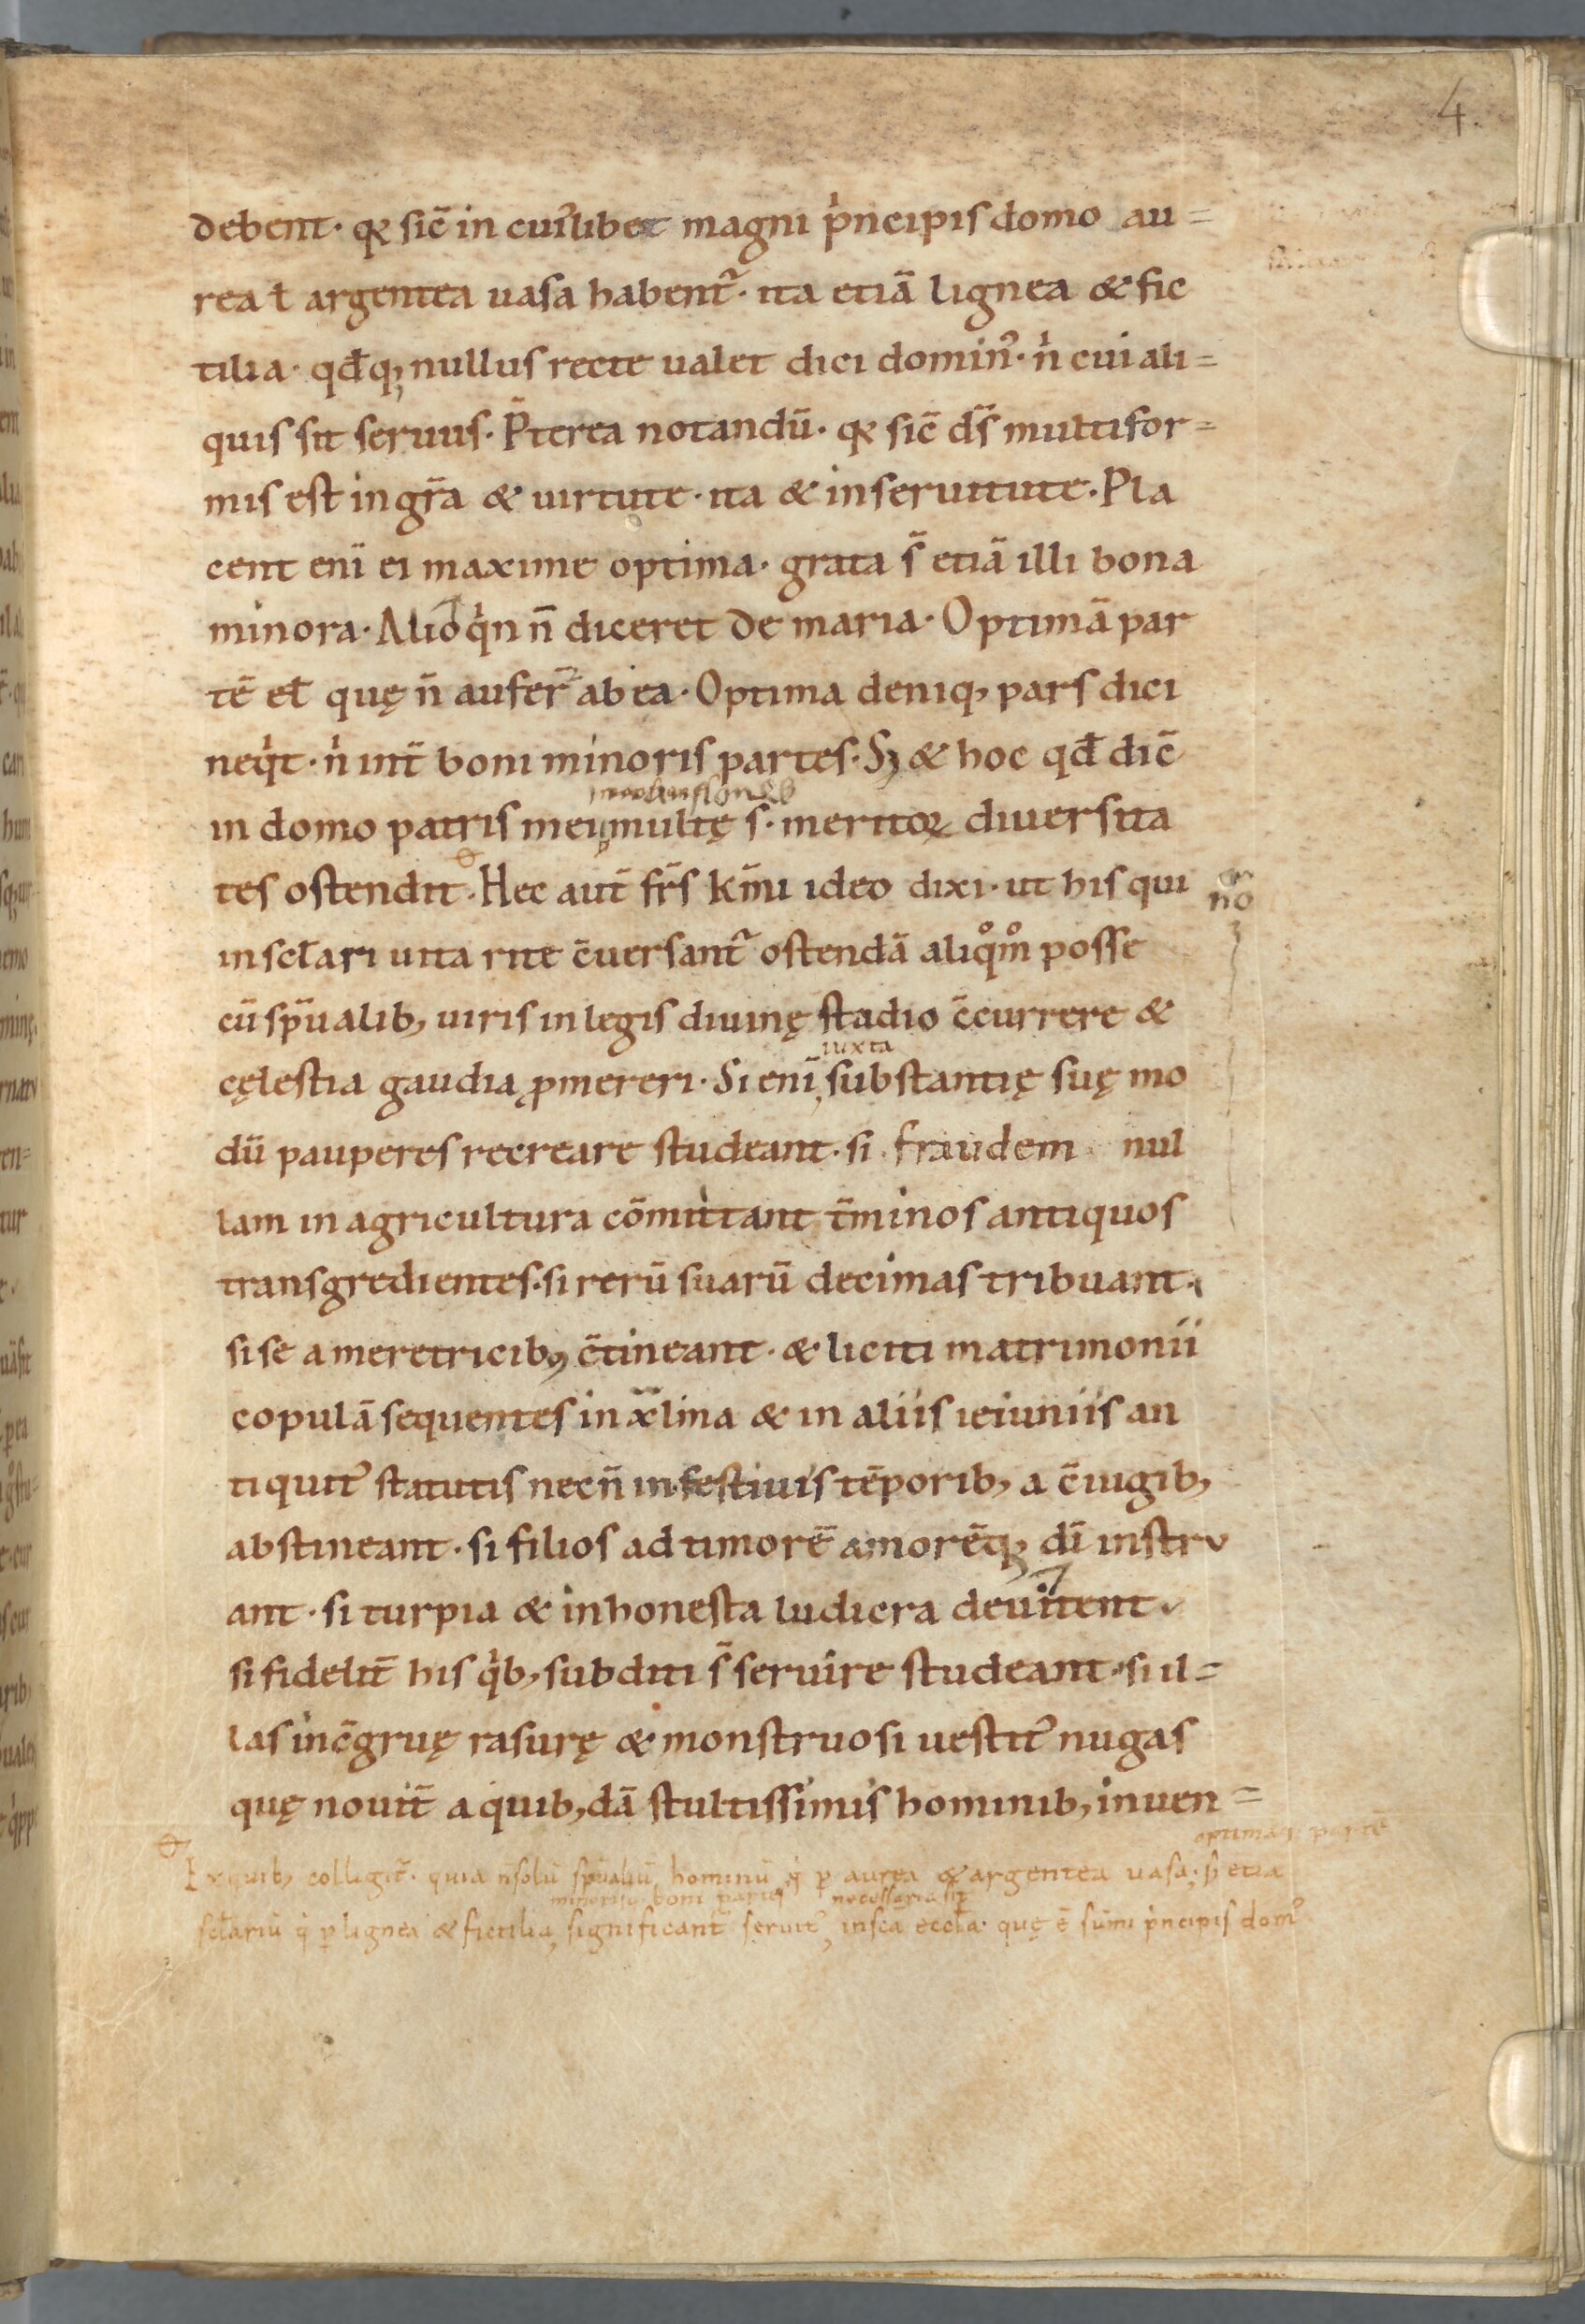 4.
debent· qꝛ sic̄ in cui᷒libet magni p͛ncipis domo au=
rea ł argentea uasa habent᷑· ita etiā lignea & fic
tilia· qđq; nullus recte ualet dici domin᷒· n͛ cui ali=
quis sit seruus· P̄terea notandū· qꝛ sic̄ ds̄ multifor=
mis est in gr̄a & uirtute· ita & in seruitute· Pla
cent enī ei maxime optima· grata s̄ etiā illi bona
minora· Alioq͛n n̄ diceret de maria· Optimā par
tē eł quę n̄ aufer᷑ ab ea· Optima deniq; pars dici
neq͛t· n͛ int̄ boni minoris partes· Sȝ & hoc qđ dic̄
mansiones
in domo patris mei, multę s̄· meritoꝝ diuersita
tes ostendit· Hec aut̄ fr̄s km̄i ideo dixi· ut his qui
no
in scł̄ari uita rite c̄uersant᷑ ostendā aliqͦmͦ posse
cū sp̄ualib; uiris in legis diuinę stadio c̄currere &
iuxta
cęlestia gaudia ꝓmereri· Si enī, substantię suę mo
dū pauperes recreare studeant· si fraudem nul
lam in agricultura cōmittant t̄minos antiquos
transgredientes· si rerū suarū decimas tribuant·
si se a meretricib; c̄tineant· & liciti matrimonii
copulā sequentes in xl̄ma & in aliis ieiuniis an
tiquit᷑ statutis necn̄ in festiuis tēporib; a c̄iugib;
abstineant· si filios ad timorē amorēq; dī instru
ant· si turpia & inhonesta ludicra deuitent·
si fidelit̄ his q͛b; subditi s̄ seruire studeant· si il=
las inc̄gruę rasurę & monstruosi uestit᷒ nugas
quę nouit̄ a quib;dā stultissimis hominib; inuen=
optimā partē
Ex quib; colligit᷑· quia n̄ solū sp̄ualiū hominū q͛ ꝑ aurea & argentea uasa· sȝ etiā
minoris boni partē necessaria sit
scł̄ariū q͛ ꝑ lignea & fictilia, significant᷑ seruit᷒, in scā eccła· quę ē sūmi p͛ncipis dom᷒